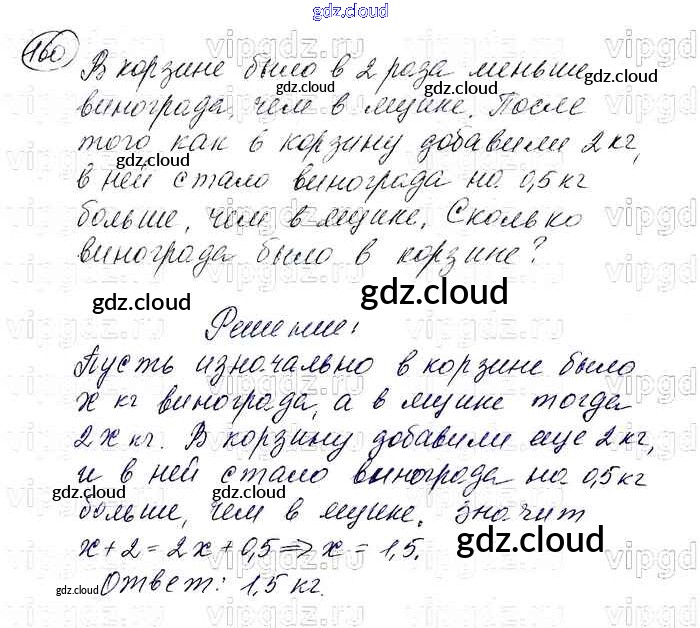 gdz.cloud
160
В корзине было в 2 раза меньше
винограда, чем в ящике. После
того как в корзину добавили 2 кг,
в ней стало винограда на 0,5 кг
больше, чем в ящике. Сколько
винограда было в корзине?
gdz.cloud gdz.cloud
Решение:
Пусть изначально в корзине было
x кг винограда, а в ящике тогда
2x кг. В корзину добавили еще 2 кг,
и в ней стало винограда на 0,5 кг
больше, чем в ящике. Значит
x + 2 = 2x + 0,5 ⇒ x = 1,5.
Ответ: 1,5 кг.
gdz.cloud